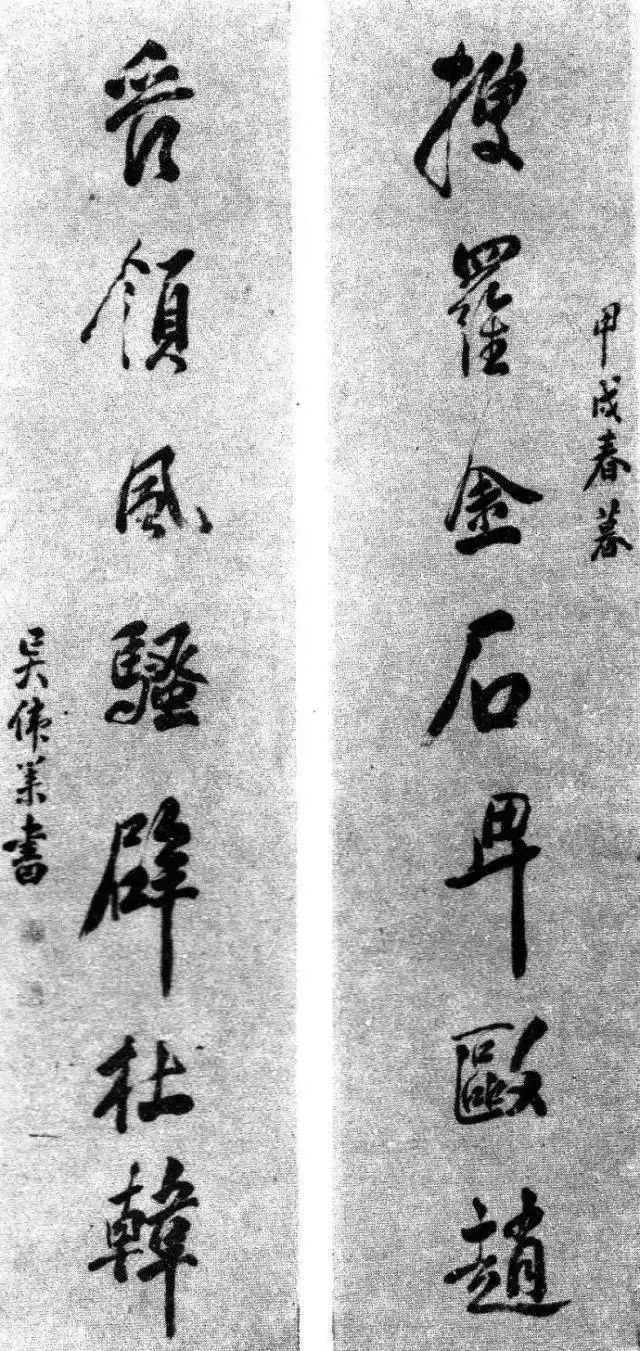 甲戌春暮
搜羅金石卑歐趙
領風騷辟杜韓
吳偉業書